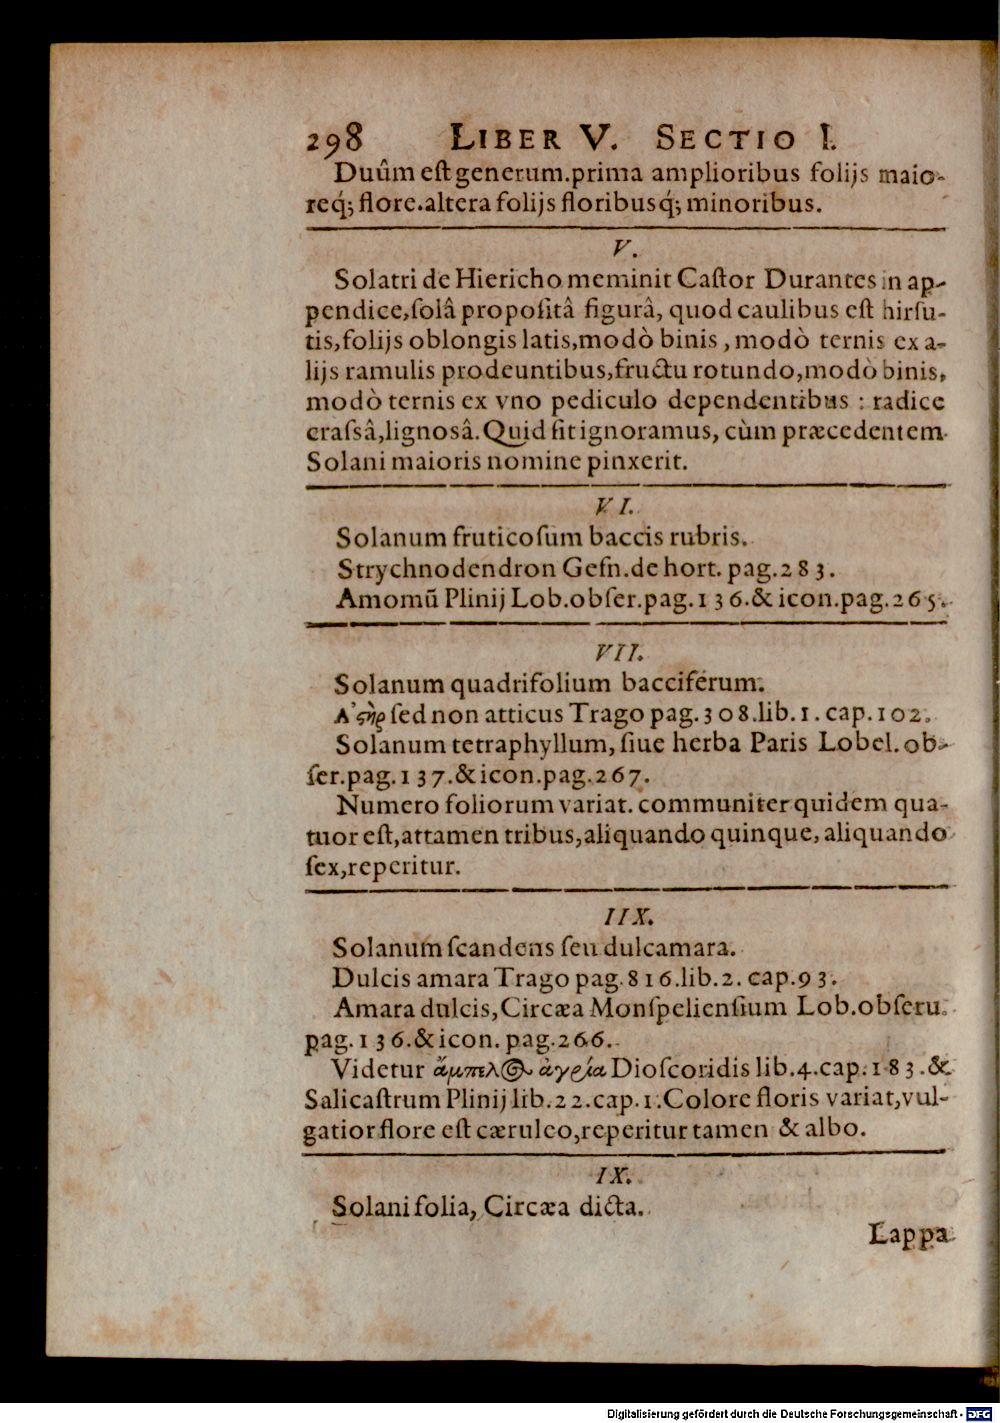 298 LIBER V. SECTIO I.
Duûm eſt generum.prima amplioribus folijs maio-
req́; flore.altera folijs floribusq́; minoribus.
V.
Solatri de Hiericho meminit Caſtor Durantes in ap-
pendice,ſolâ propoſitâ figurâ, quod caulibus eſt hirſu-
tis,folijs oblongis latis,modò binis, modò ternis ex a-
lijs ramulis prodeuntibus,fructu rotundo,modò binis,
modò ternis ex vno pediculo dependentibus : radice
craſsâ,lignosâ.Quid ſit ignoramus, cùm præcedentem
Solani maioris nomine pinxerit.
VI.
Solanum fruticoſum baccis rubris.
Strychnodendron Geſn.de hort. pag.283.
Amomũ Plinij Lob.obſer.pag.136.& icon.pag.265.
VII.
Solanum quadrifolium bacciferum.
Ἀϛὴρ ſed non atticus Trago pag.308.lib.1.cap.102.
Solanum tetraphyllum, ſiue herba Paris Lobel.ob-
ſer.pag.137.& icon.pag.267.
Numero foliorum variat. communiter quidem qua-
tuor eſt,attamen tribus,aliquando quinque, aliquando
ſex,reperitur.
IIX.
Solanum ſcandens ſeu dulcamara.
Dulcis amara Trago pag.816.lib.2. cap.93.
Amara dulcis,Circæa Monſpelienſium Lob.obſeru.
pag.136.& icon. pag.266.
Videtur ἄμπελος ἀγρία Dioſcoridis lib.4.cap.183.&
Salicaſtrum Plinij lib.22.cap.1.Colore floris variat,vul-
gatior flore eſt cæruleo,reperitur tamen & albo.
IX.
Solani folia, Circæa dicta.
Lappa
Digitalisierung gefördert durch die Deutsche Forschungsgemeinschaft - DFG